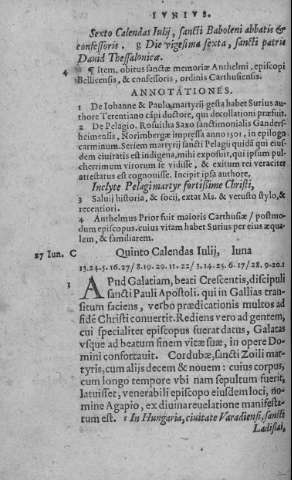 IVNIVS.
Sexto Calendas Iulij, sancti Baboleni abbatis &
confessoris. g Die vigesima sexta, sancti patris
Dauid Thessalonicæ.
4 ¶ Item, obitus sanctæ memoriæ Anthelmi, episcopi
Bellicensis, & confessoris, ordinis Carthusiensis.
ANNOTATIONES.
1 De Iohanne & Paulo martyrij gesta habet Surius au-
thore Terentiano cāpi ductore, qui decollationi præfuit.
2 De Pelagio. Rosuitha Saxo sanctimonialis Ganders-
heimensis, Norimbergæ impressa anno 1501, in epiloga
carminum. Seriem martyrij sancti Pelagij quidā qui eius-
dem ciuitatis est indigena, mihi exposuit, qui ipsum pul-
cherrimum virorum se vidisse, & exitum rei veraciter
attestatus est cognouisse. Incipit ipsa authore,
Inclyte Pelagi martyr fortissime Christi,
3 Saluij historia, & socij, extat Ms. & vetusto stylo, &
recentiori.
4 Anthelmus Prior fuit maioris Carthusiæ / postmo-
dum episcopus. cuius vitam habet Surius per eius æqua-
lem, & familiarem.
27 Iun. C Quinto Calendas Iulij, luna
13.24.5.16.27/8.19.20.11.22/3.14.25.6.17/28.9.20.1
1 APud Galatiam, beati Crescentis, discipuli
sancti Pauli Apostoli. qui in Gallias transi-
tum faciens, verbo prædicationis multos ad
fidē Christi conuertit. Rediens vero ad gentem,
cui specialiter episcopus fuerat datus, Galatas
vsque ad beatum finem vitæ suæ, in opere Do-
mini confortauit. Cordubæ, sancti Zoili mar-
tyris, cum alijs decem & nouem: cuius corpus,
cum longo tempore vbi nam sepultum fuerit,
latuisset, venerabili episcopo eiusdem loci, no-
mine Agapio, ex diuina reuelatione manifesta-
tum est. 1 In Hungaria, ciuitate Varadiensi, sancti
Ladislai,